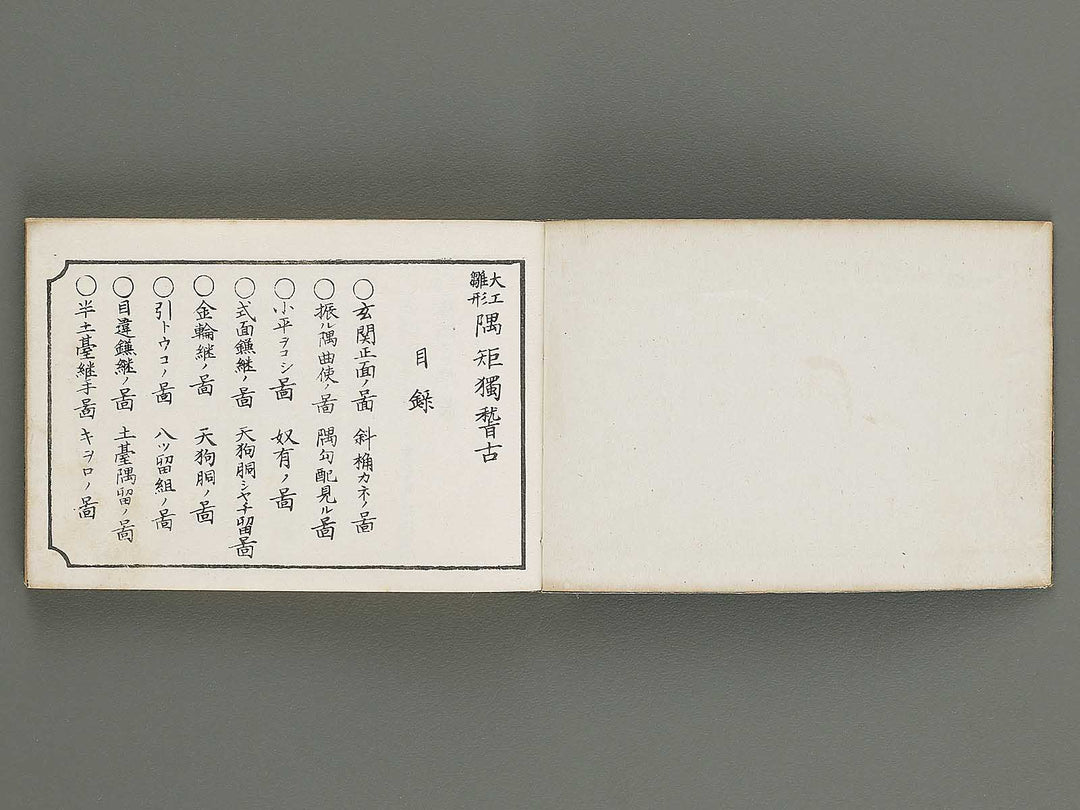 大工雛形 隅矩獨稽古
目録
○玄関正面ノ啚 斜桷カネノ啚
○振ル隅曲使ノ啚 隅勾配見ル啚
○小平ヲコシ啚 奴有ノ啚
○式面鎌継ノ啚 天狗胴シヤチ留啚
○金輪継ノ啚 天狗胴ノ啚
○引トウコノ啚 八ツ留組ノ啚
○目違鎌継ノ啚 土臺隅留ノ啚
○半土臺継手啚 キヲロノ啚